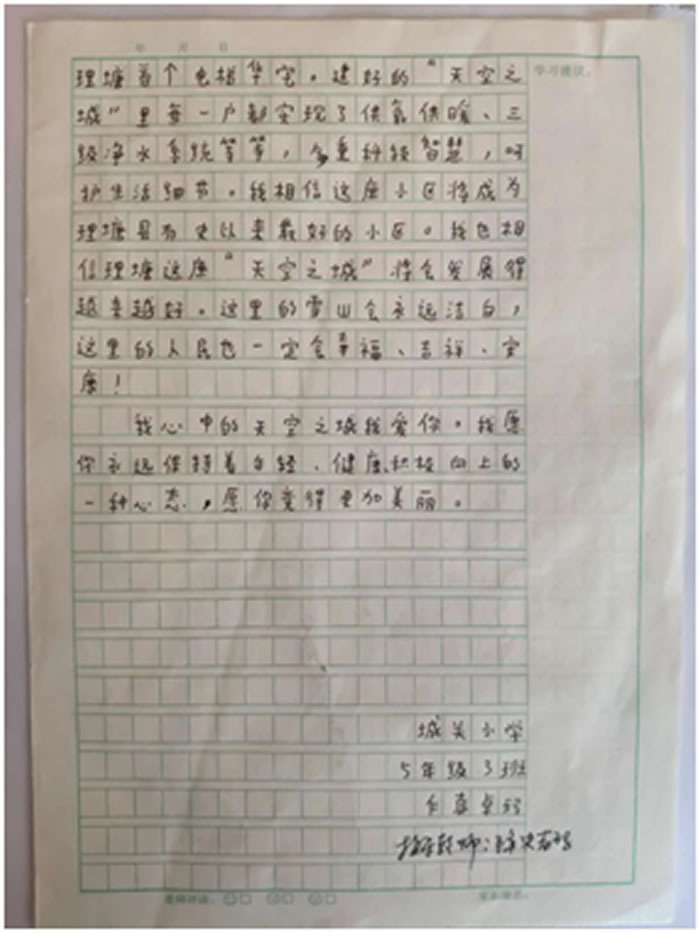 年 月 日
学习建议:
理塘首个电梯华宅。建好的“天空之
城”里每一户都实现了供氧供暖、三
级净水系统等等,多重科技智慧,呵
护生活细节。我相信这座小区将成为
理塘县有史以来最好的小区。我也相
信理塘这座“天空之城”将会发展得
越来越好。这里的雪山会永远洁白,
这里的人民也一定会幸福、吉祥、安
康!
我心中的天空之城我爱你。我愿
你永远保持着年轻、健康积极向上的
一种心态,愿你变得更加美丽。
城关小学
5年级3班
真卓
指导教师:
老师评价: